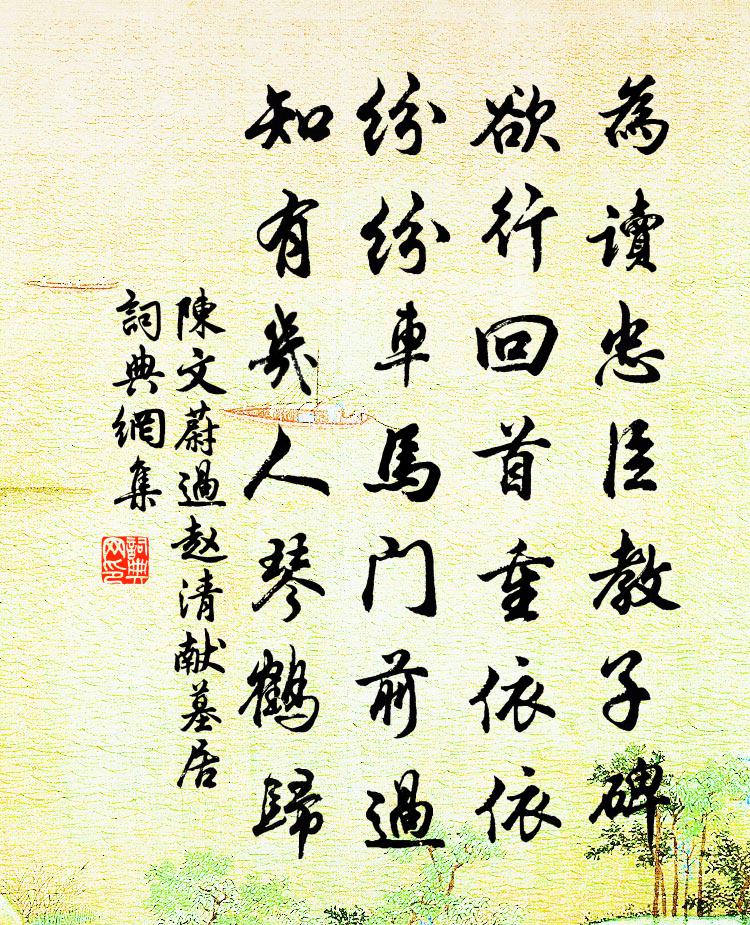 為讀忠臣教子碑
欲行回首重依依
紛紛車馬门前過
知有幾人琴鶴歸
陳文蔚過赵清献墓居
詞典網集
詞典
网印